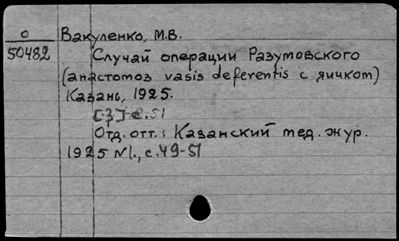 О
50482
Вакуленко, М.В.
Случай операции Разумовского
(anastomoz vasis deferentis с яичком)
Казань, 1925.
[3] с. 51
Отд. отт.: Казанский мед. жур.
1925 №1., с. 49-51